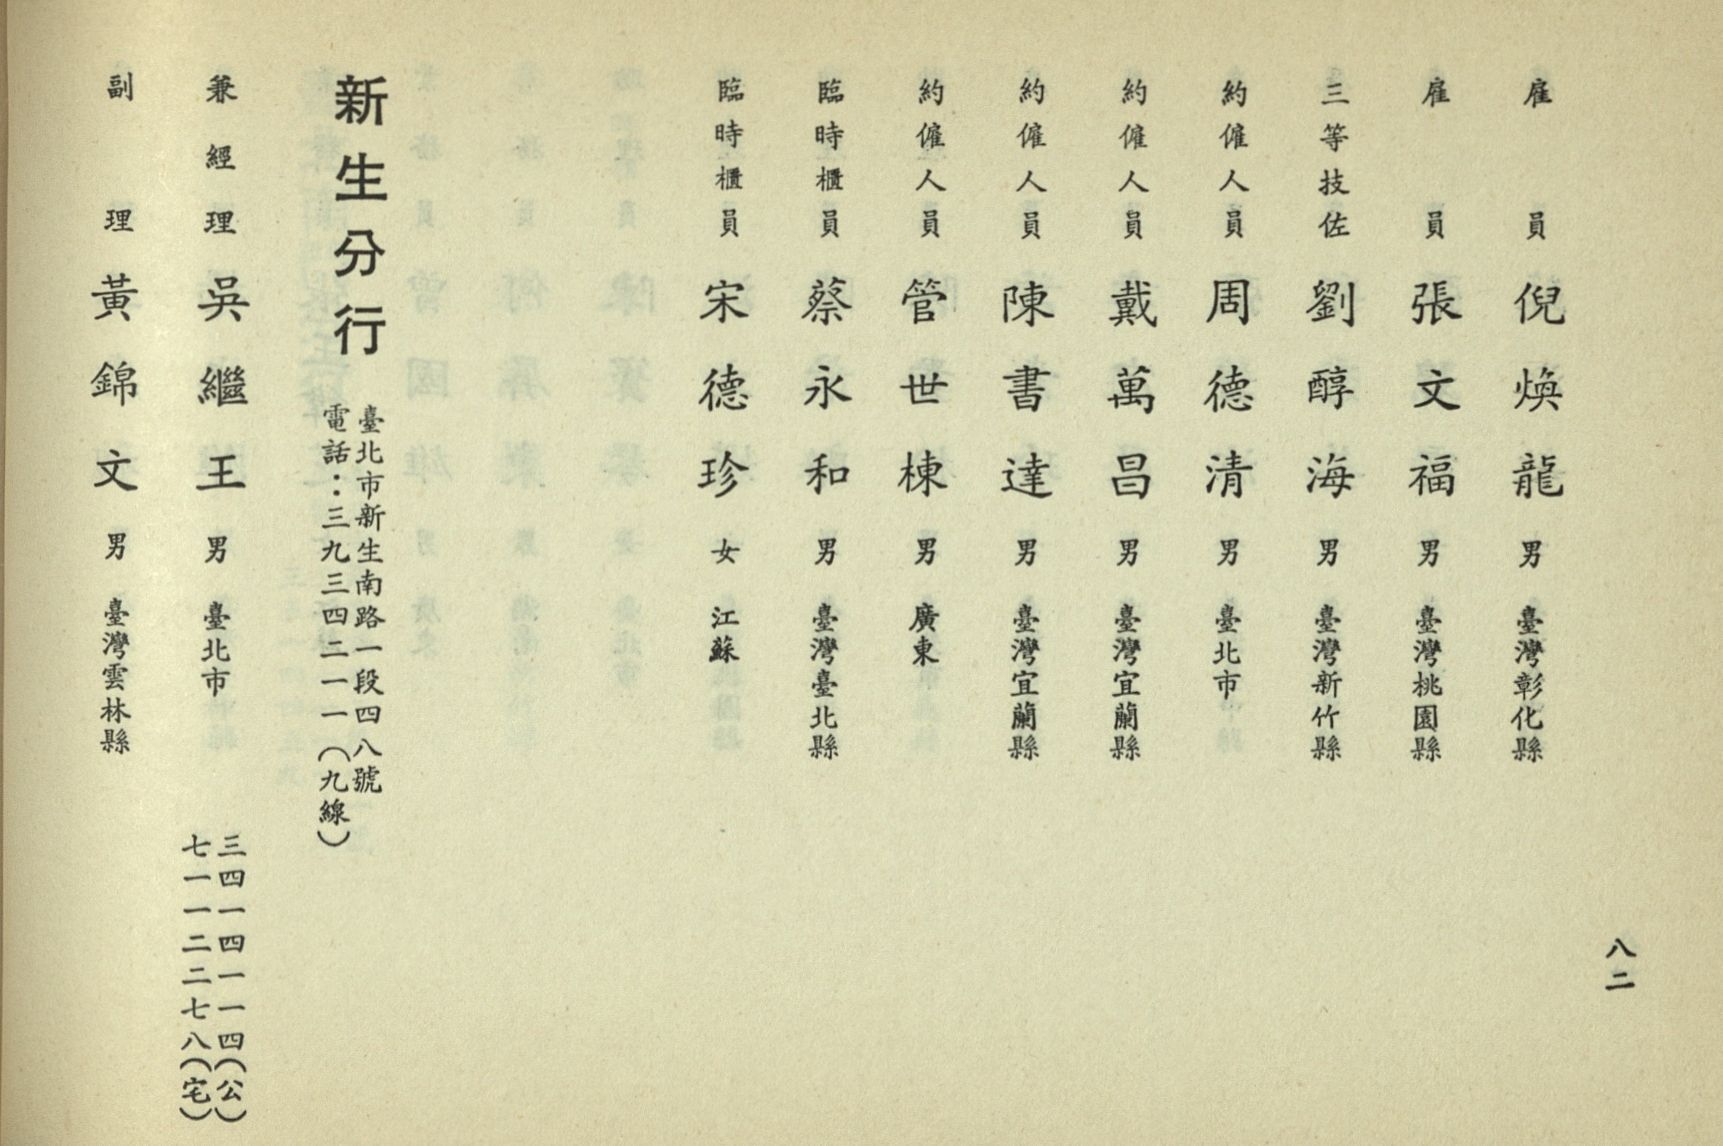 八二
雇員 倪煥龍 男 臺灣彰化縣
雇員 張文福 男 臺灣桃園縣
三等技佐 劉醇海 男 臺灣新竹縣
約僱人員 周德清 男 臺北市
約僱人員 戴萬昌 男 臺灣宜蘭縣
約僱人員 陳書達 男 臺灣宜蘭縣
約僱人員 管世棟 男 廣東
臨時櫃員 蔡永和 男 臺灣臺北縣
臨時櫃員 宋德珍 女 江蘇
新生分行
臺北市新生南路一段四八號
電話：三九三四二一一（九線）
兼經理 吳繼王 男 臺北市
三四一四一一四（公）
七一一二二七八（宅）
副理 黃錦文 男 臺灣雲林縣